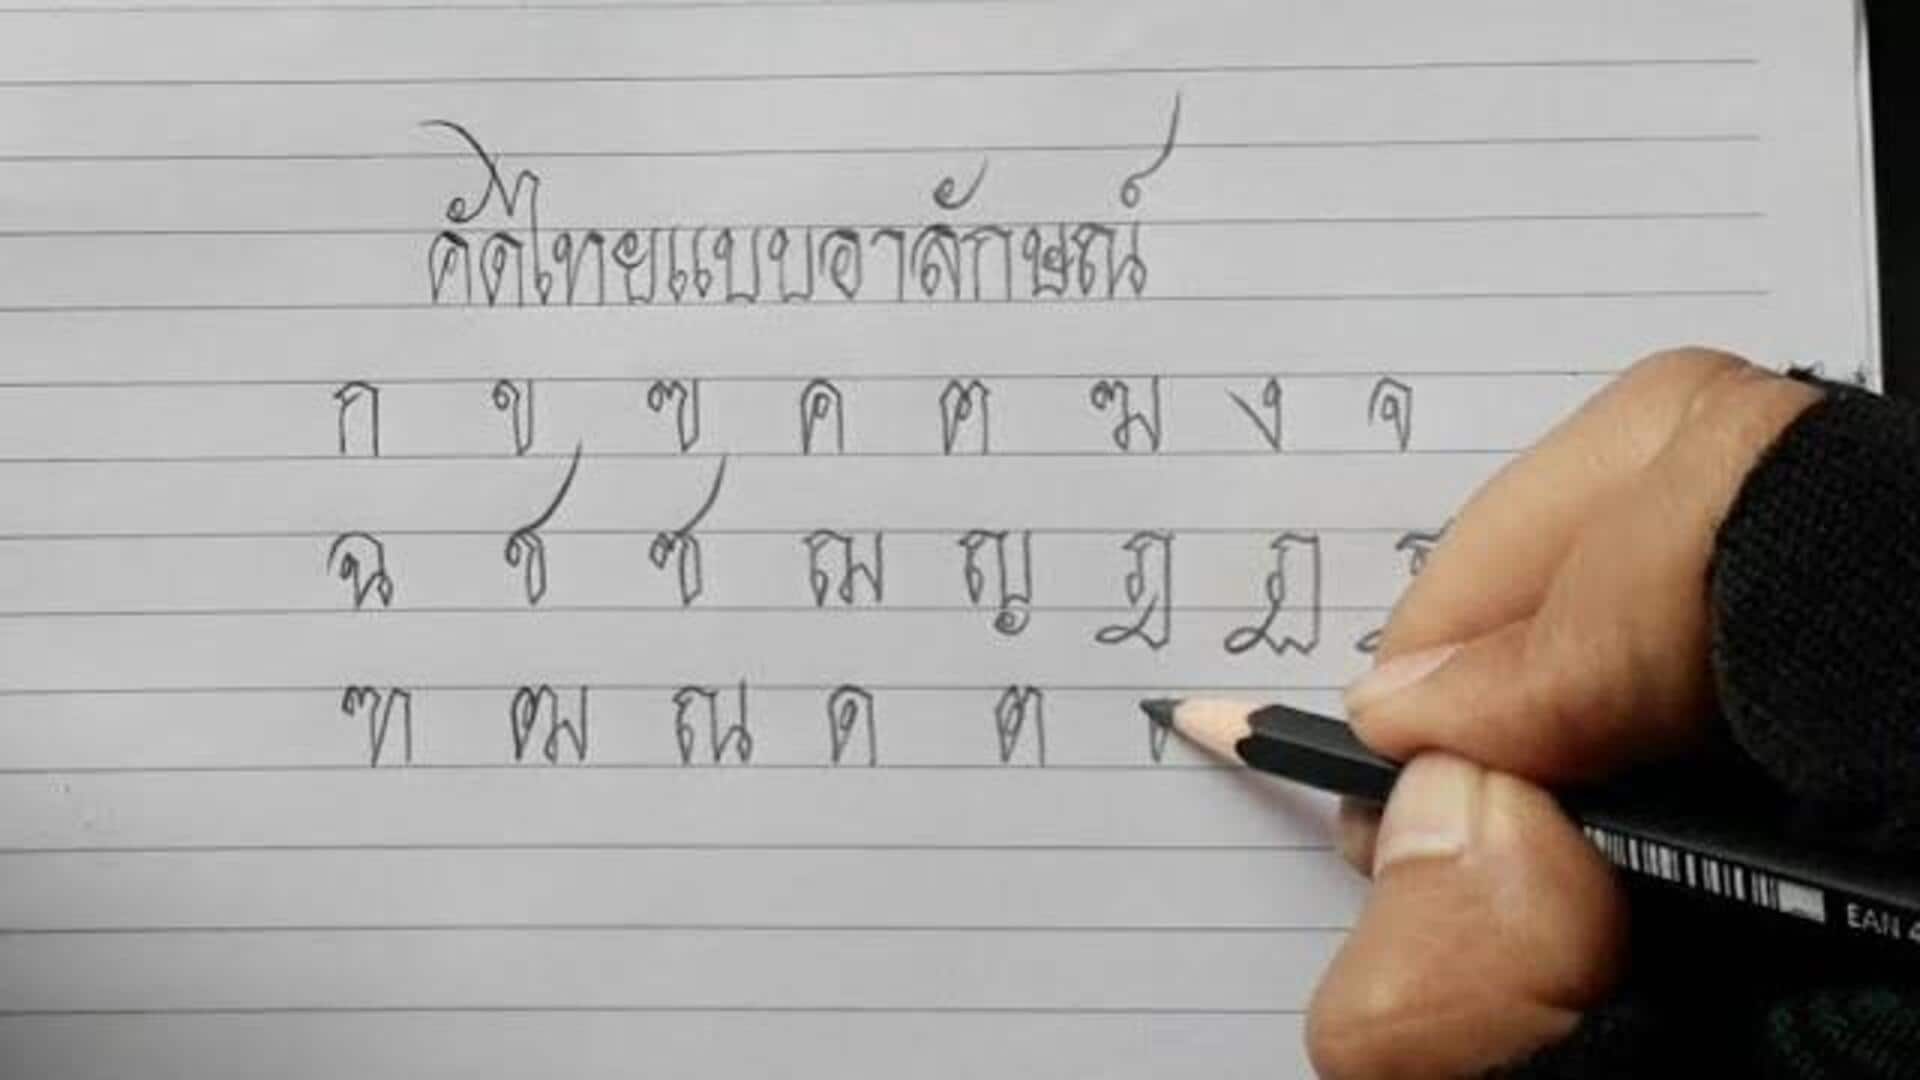 คัดไทยแบบอาลักษณ์
ก ข ฃ ค ฅ ฆ ง จ
ฉ ช ซ ฌ ญ ฎ ฏ
ฑ ฒ ณ ด ต
EAN 4